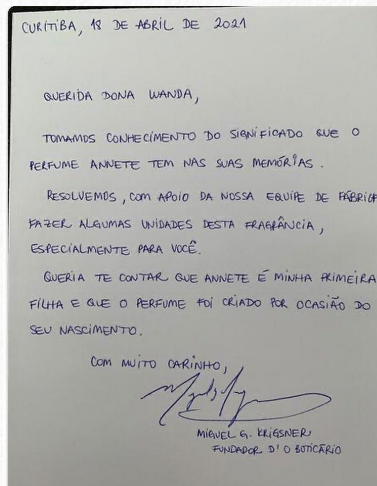 CURITIBA, 18 DE ABRIL DE 2021
QUERIDA DONA WANDA,
TOMAMOS CONHECIMENTO DO SIGNIFICADO QUE O
PERFUME ANNETE TEM NAS SUAS MEMÓRIAS.
RESOLVEMOS, COM APOIO DA NOSSA EQUIPE DE FÁBRICA
FAZER ALGUMAS UNIDADES DESTA FRAGRÂNCIA,
ESPECIALMENTE PARA VOCÊ.
QUERIA TE CONTAR QUE ANNETE É MINHA PRIMEIRA
FILHA E QUE O PERFUME FOI CRIADO POR OCASIÃO DO
SEU NASCIMENTO.
COM MUITO CARINHO,
MIGUEL G. KRIGSNER
FUNDADOR D' O BOTICÁRIO